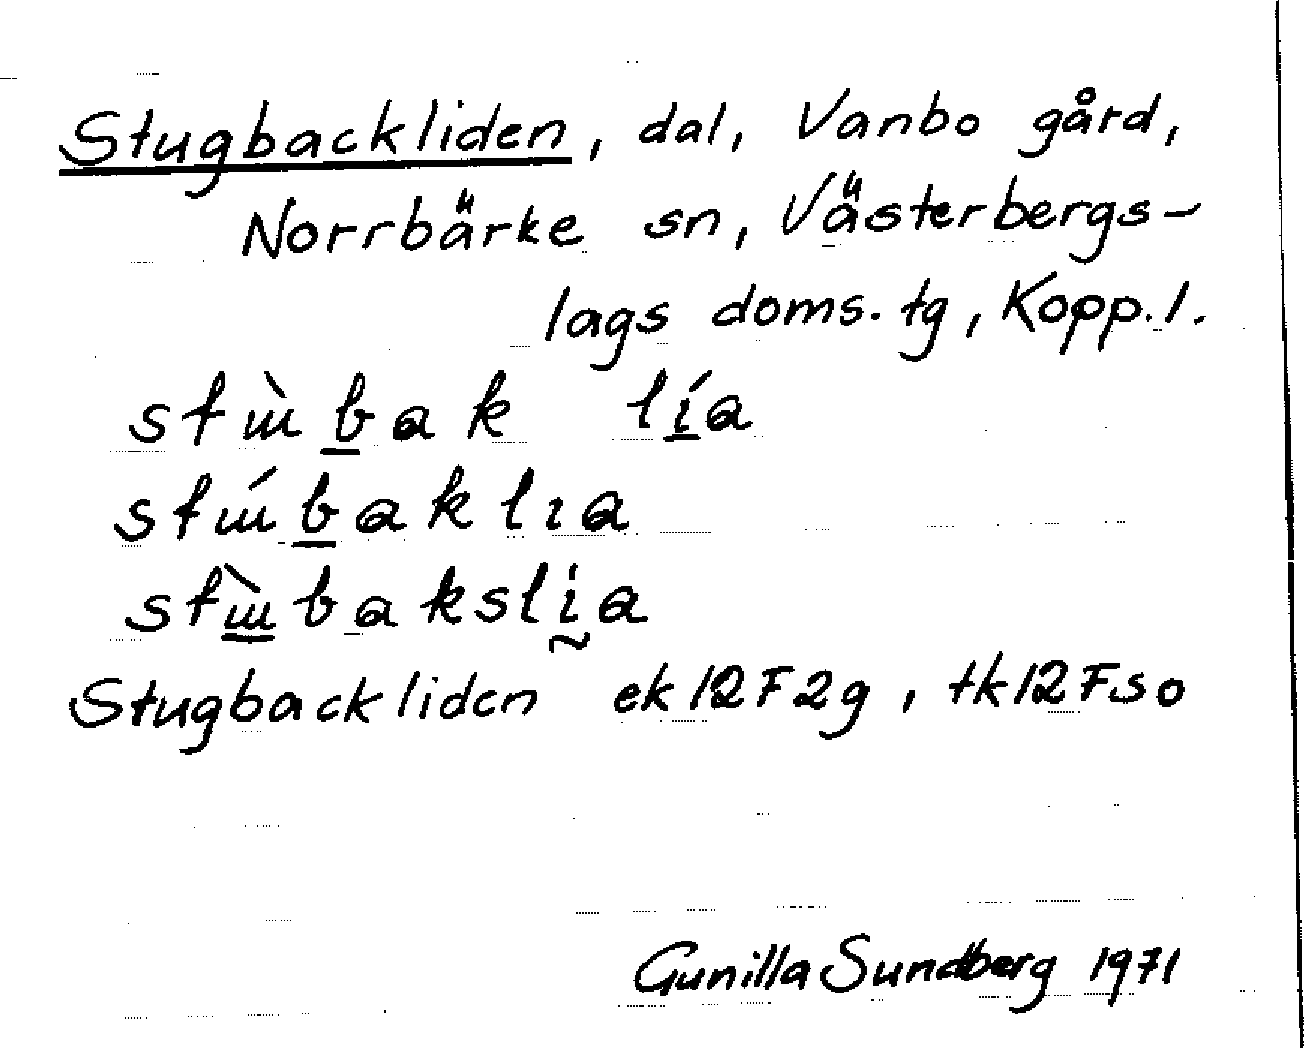 Stugbackliden, dal, Vanbo gård,
Norrbärke sn, Västerbergs-
lags doms. tg, Kopp. l.
stɯ̀b̲ak lí̲a
stɯ́b̲aklıa
stɯ̳̀bakslḭa
Stugbackliden ek 12F2g, tk12Fso
Gunilla Sundberg 1971